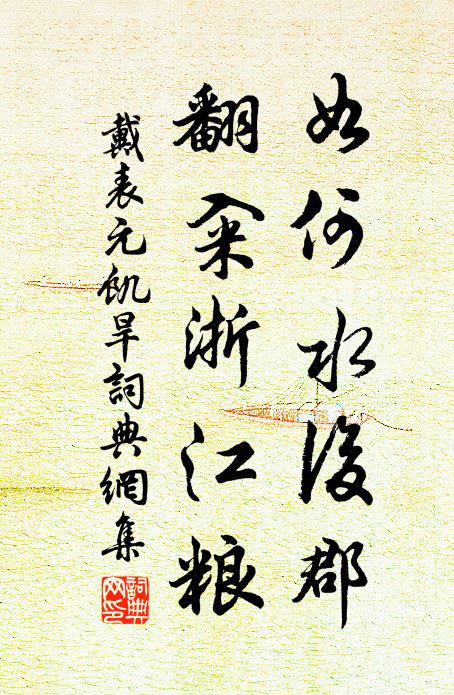 如何水後郡
翻籴浙江粮
戴表元飢旱詞典網集
詞典
网印